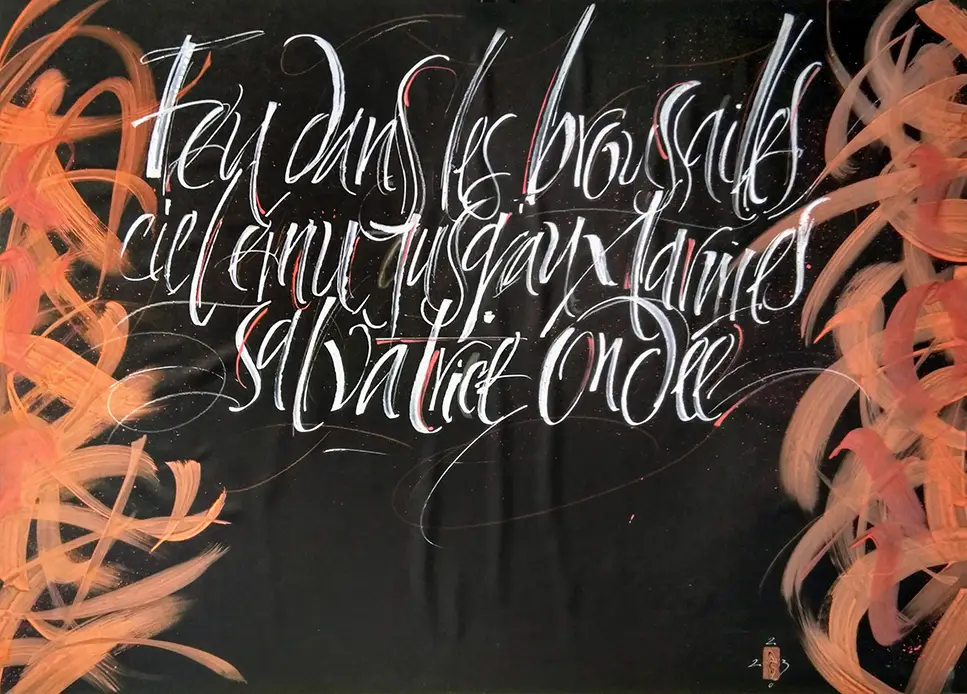 Feu dans les broussailles
ciel ému jusqu'aux larmes
salvatrice ondée
2
2 3